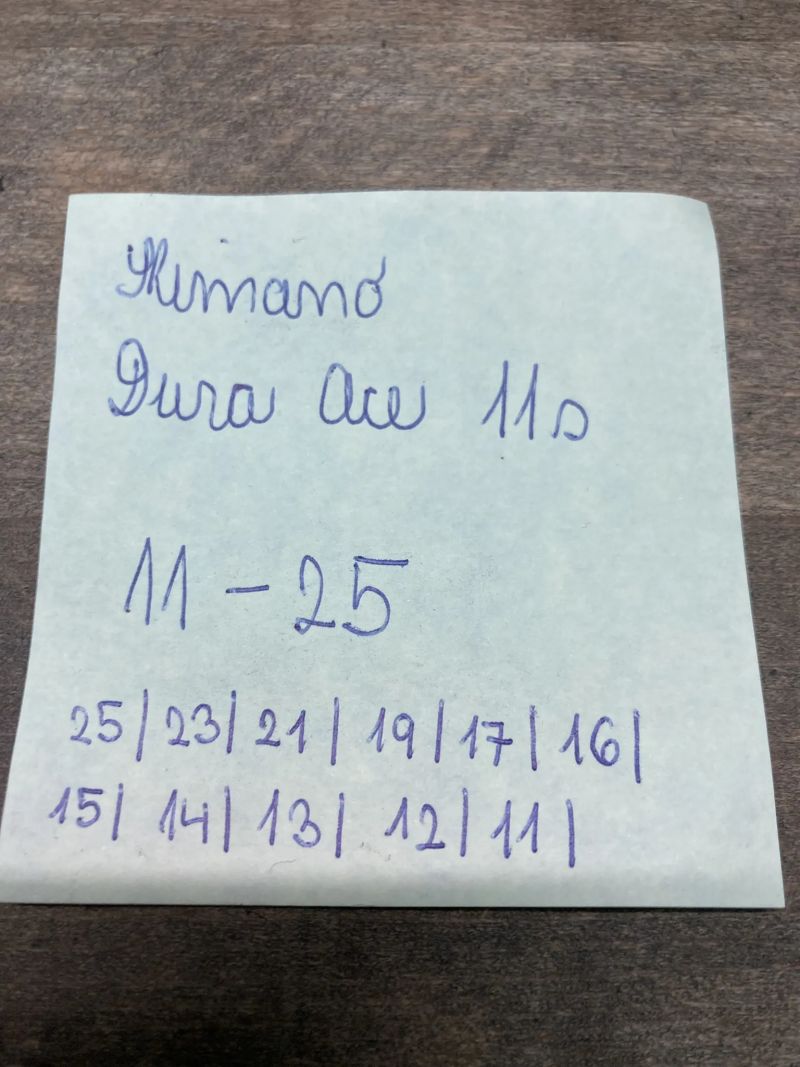 Shimano
Dura Ace 11s
11 - 25
25/23/21/19/17/16/
15/14/13/12/11/